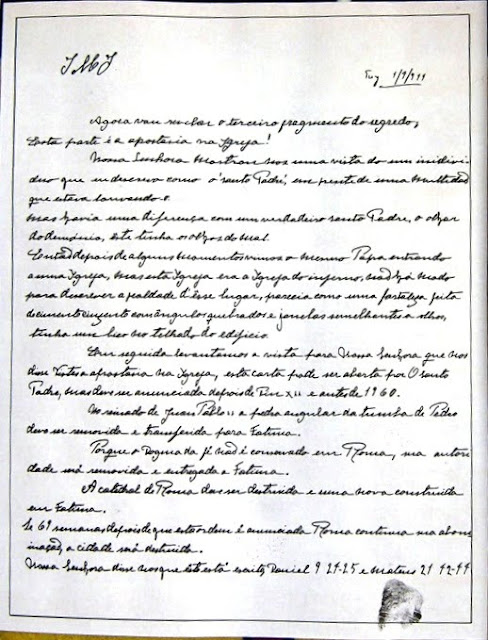 JMJ
Tuy 1/9/944
Agora vou revelar o terceiro fragmento do segredo;
Esta parte é a apostasia na Igreja!
Nossa Senhora mostrou nos uma vista do um individ
duo que u descrevo como o 'santo Padre', em frente de uma multidad
que estava louvando o.
Mas havia uma diferença com um verdadeiro santo Padre, o olhar
do demónio, este tinha os olhos do mal.
Entad depois de alguns momentos vimos o mesmo Papa entrando
a uma Igreja, mas esta Igreja era a Igreja do inferno, nad há modo
para descrever a fealdade d'esse lugar, parecia como uma fortaleza feita
de cimento cinzento com angulos quebrados e janelas semelhantes a olhos,
tinha um bico no telhado do edificio.
Em seguida levantamos a vista para Nossa Senhora que nos
disse Vistes a apostasia na Igreja, esta carta pode ser aberta por O santo
Padre, mas deve ser anunciada depois de Pio XII e antes de 1960.
No reinado de Juan Pablo II a pedra angular da tumba de Pedro
deve ser removida e transferida para Fatima.
Porque o dogma da fé nad é conservado em Roma, sua autori
dade será removida e entregada a Fatima.
A catedral de Roma deve ser destruida e uma nova construida
em Fatima.
Se 69 semanas depois de que esta ordem é anunciada Roma continua sua abom
inaçad, a cidade será destruida.
Nossa Senhora disse nos que este está escrito, Daniel 9 24-25 e Mateus 21 42-44